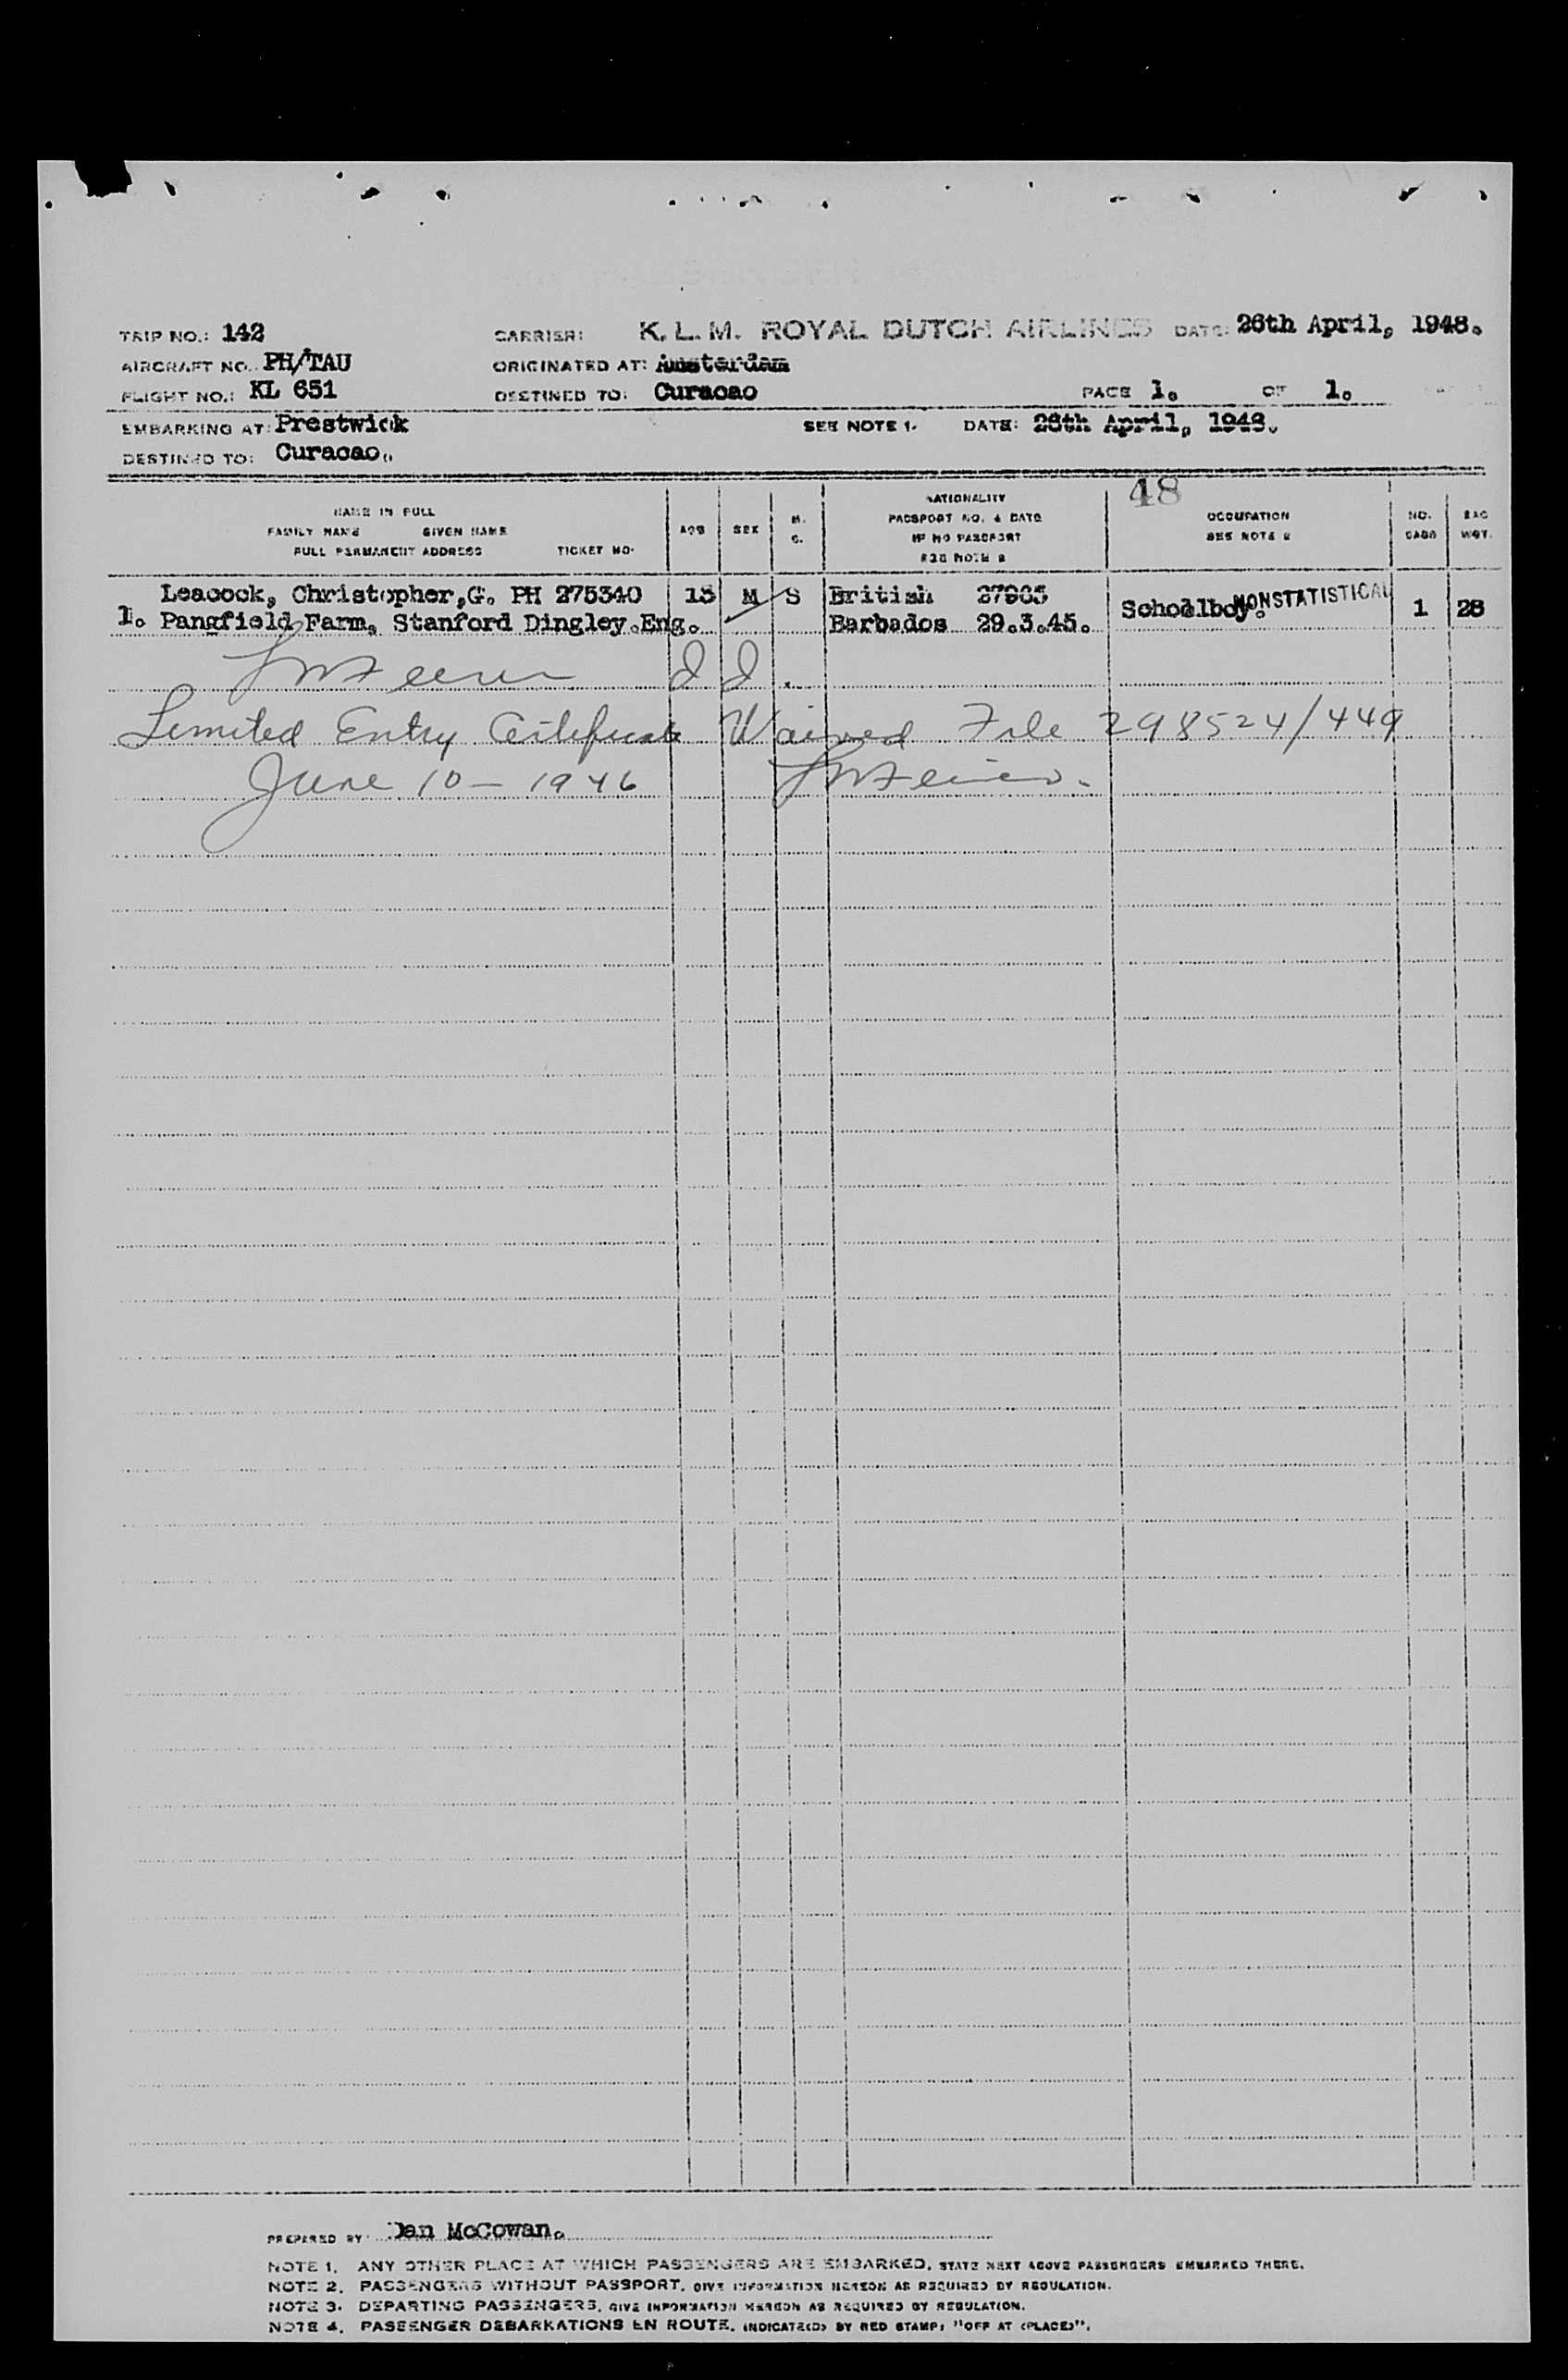 TRIP NO.: 142 CARRIER: K.L.M. ROYAL DUTCH AIRLINES DATE: 26th April, 1948.
AIRCRAFT NO. PH/TAU ORIGINATED AT: Amsterdam
FLIGHT NO.: KL 651 DESTINED TO: Curacao PAGE 1. OF 1.
EMBARKING AT: Prestwick SEE NOTE 1. DATE: 26th April, 1948.
DESTINED TO: Curacao.
48
NAME IN FULL
FAMILY NAME GIVEN NAME
FULL PERMANENT ADDRESS TICKET NO.
AGE
SEX
M.
S.
NATIONALITY
PASSPORT NO. & DATE
IF NO PASSPORT
SEE NOTE 2
OCCUPATION
SEE NOTE 2
NO.
BAGS
BAG
WGT.
Leacock, Christopher,G. PH 275340 15 M S British 27905
1. Pangfield Farm, Stanford Dingley.Eng. Barbados 29.3.45. Schoolboy. NONSTATISTICAL 1 28
Limited Entry Certificate Waived File 298524/449
June 10 - 1946
PREPARED BY: Dan McCowan.
NOTE 1. ANY OTHER PLACE AT WHICH PASSENGERS ARE EMBARKED, STATE NEXT ABOVE PASSENGERS EMBARKED THERE.
NOTE 2. PASSENGERS WITHOUT PASSPORT, GIVE INFORMATION HEREON AS REQUIRED BY REGULATION.
NOTE 3. DEPARTING PASSENGERS, GIVE INFORMATION HEREON AS REQUIRED BY REGULATION.
NOTE 4. PASSENGER DEBARKATIONS EN ROUTE, INDICATE(D) BY RED STAMP: "OFF AT (PLACE)".